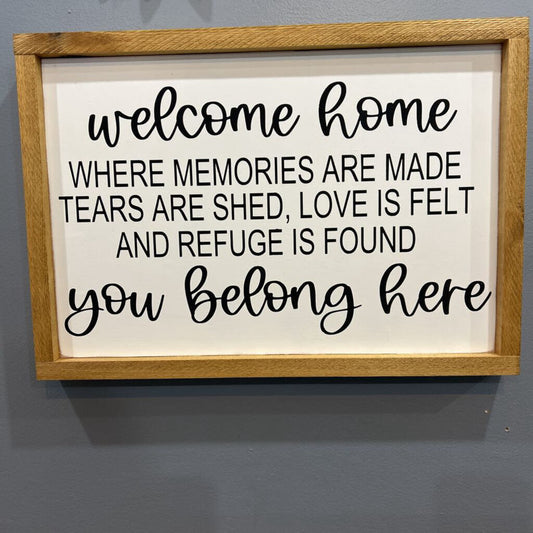 welcome home
WHERE MEMORIES ARE MADE
TEARS ARE SHED, LOVE IS FELT
AND REFUGE IS FOUND
you belong here